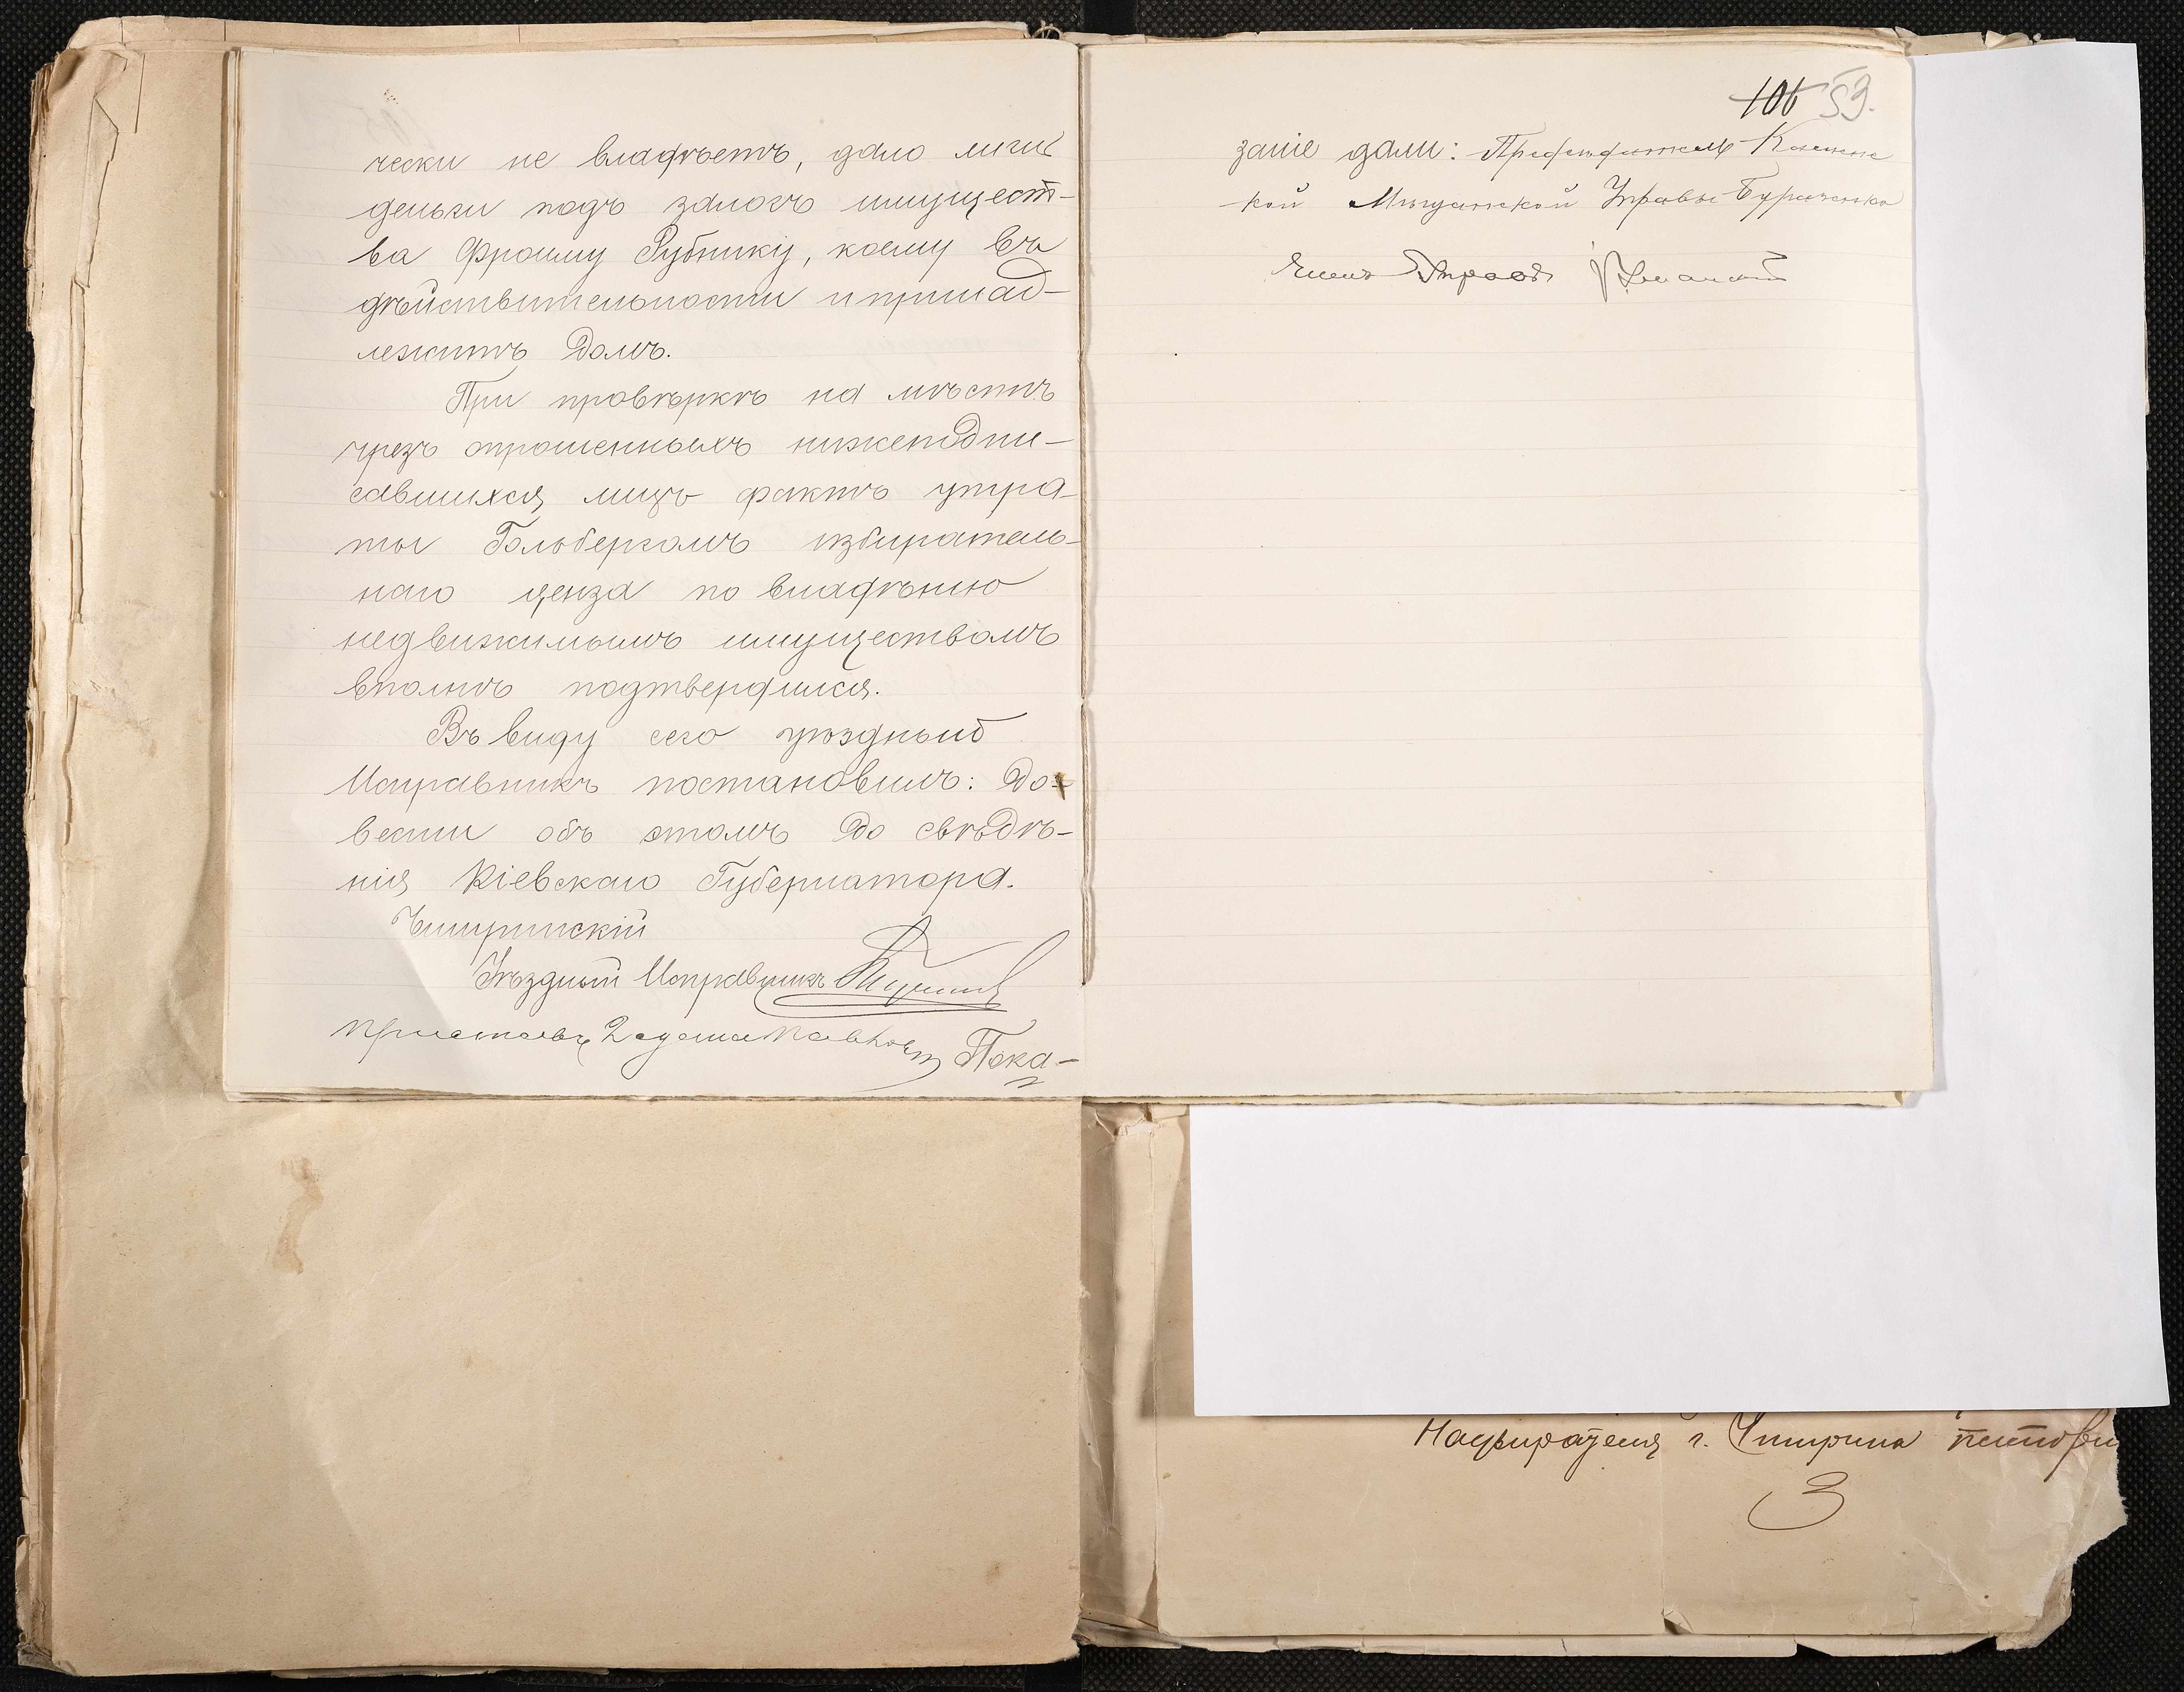 чески не владѣетъ, дало лишь
деньги подъ залогъ имущест-
ва Фроиму Рубнику, коему въ
дѣйствительности и принад-
лежитъ домъ.
При провѣркѣ на мѣстѣ
чрезъ опрошенныхъ нижеподпи-
савшихся лицъ фактъ утра-
ты Гольбергомъ избиратель-
наго ценза по владѣнію
недвижимымъ имуществомъ
вполнѣ подтвердился.
Въ виду сего уѣздный
Исправникъ постановилъ: До-
вести объ этомъ до свѣдѣ-
нія Кіевскаго Губернатора.
Чигиринскій
Уѣздный Исправникъ
Приставъ Пока-
106 59.
заніе дали: Предсѣдатель Каменс
кой Мѣщанской Управы Бураченко
Членъ Управы
Надзирателя г. Чигирина
3